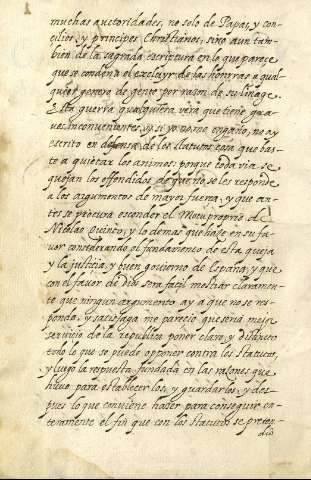 muchas auctoridades, no solo de Papas, y con-
cilios, y principes Christianos, sino aun tam-
bien de la sagrada escriptura en lo que parece
que se condena el excluyr de las honrras a qual-
quier genero de gente por razon de su linage
Esta guerra qualquiera vera que tiene gra-
ves inconvenientes, y si yo no me engaño, no ay
escrito en defensa de los statutos cosa que bas-
te a quietar los animos: porque toda via se
quejan los offendidos de que no se les responde
a los argumentos de mayor fuerça, y que an-
tes se procura esconder el Motu proprio de
Nicolao Quinto, y lo demas que haze en su fa-
vor considerando el fundamento de esta queja
y la justicia, y buen govierno de España, y que
con el favor de dios sera facil mostrar claramen-
te que ningun argumento ay a que no se res-
ponda, y satisfaga me parecio que seria mejor
servicio de la republica poner claro, y distincto
todo lo que se puede opponer contra los statutos,
y luego la respuesta fundada en las razones que
huvo para establecerlos, y guardarlos, y des-
pues lo que conviene hazer para conseguir en-
teramente el fin que con los statutos se preten-
dio